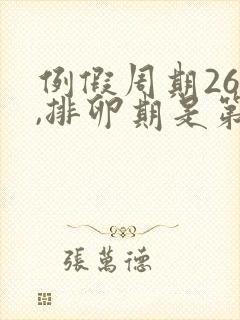 例假周期26
,排卵期是第
張萬德